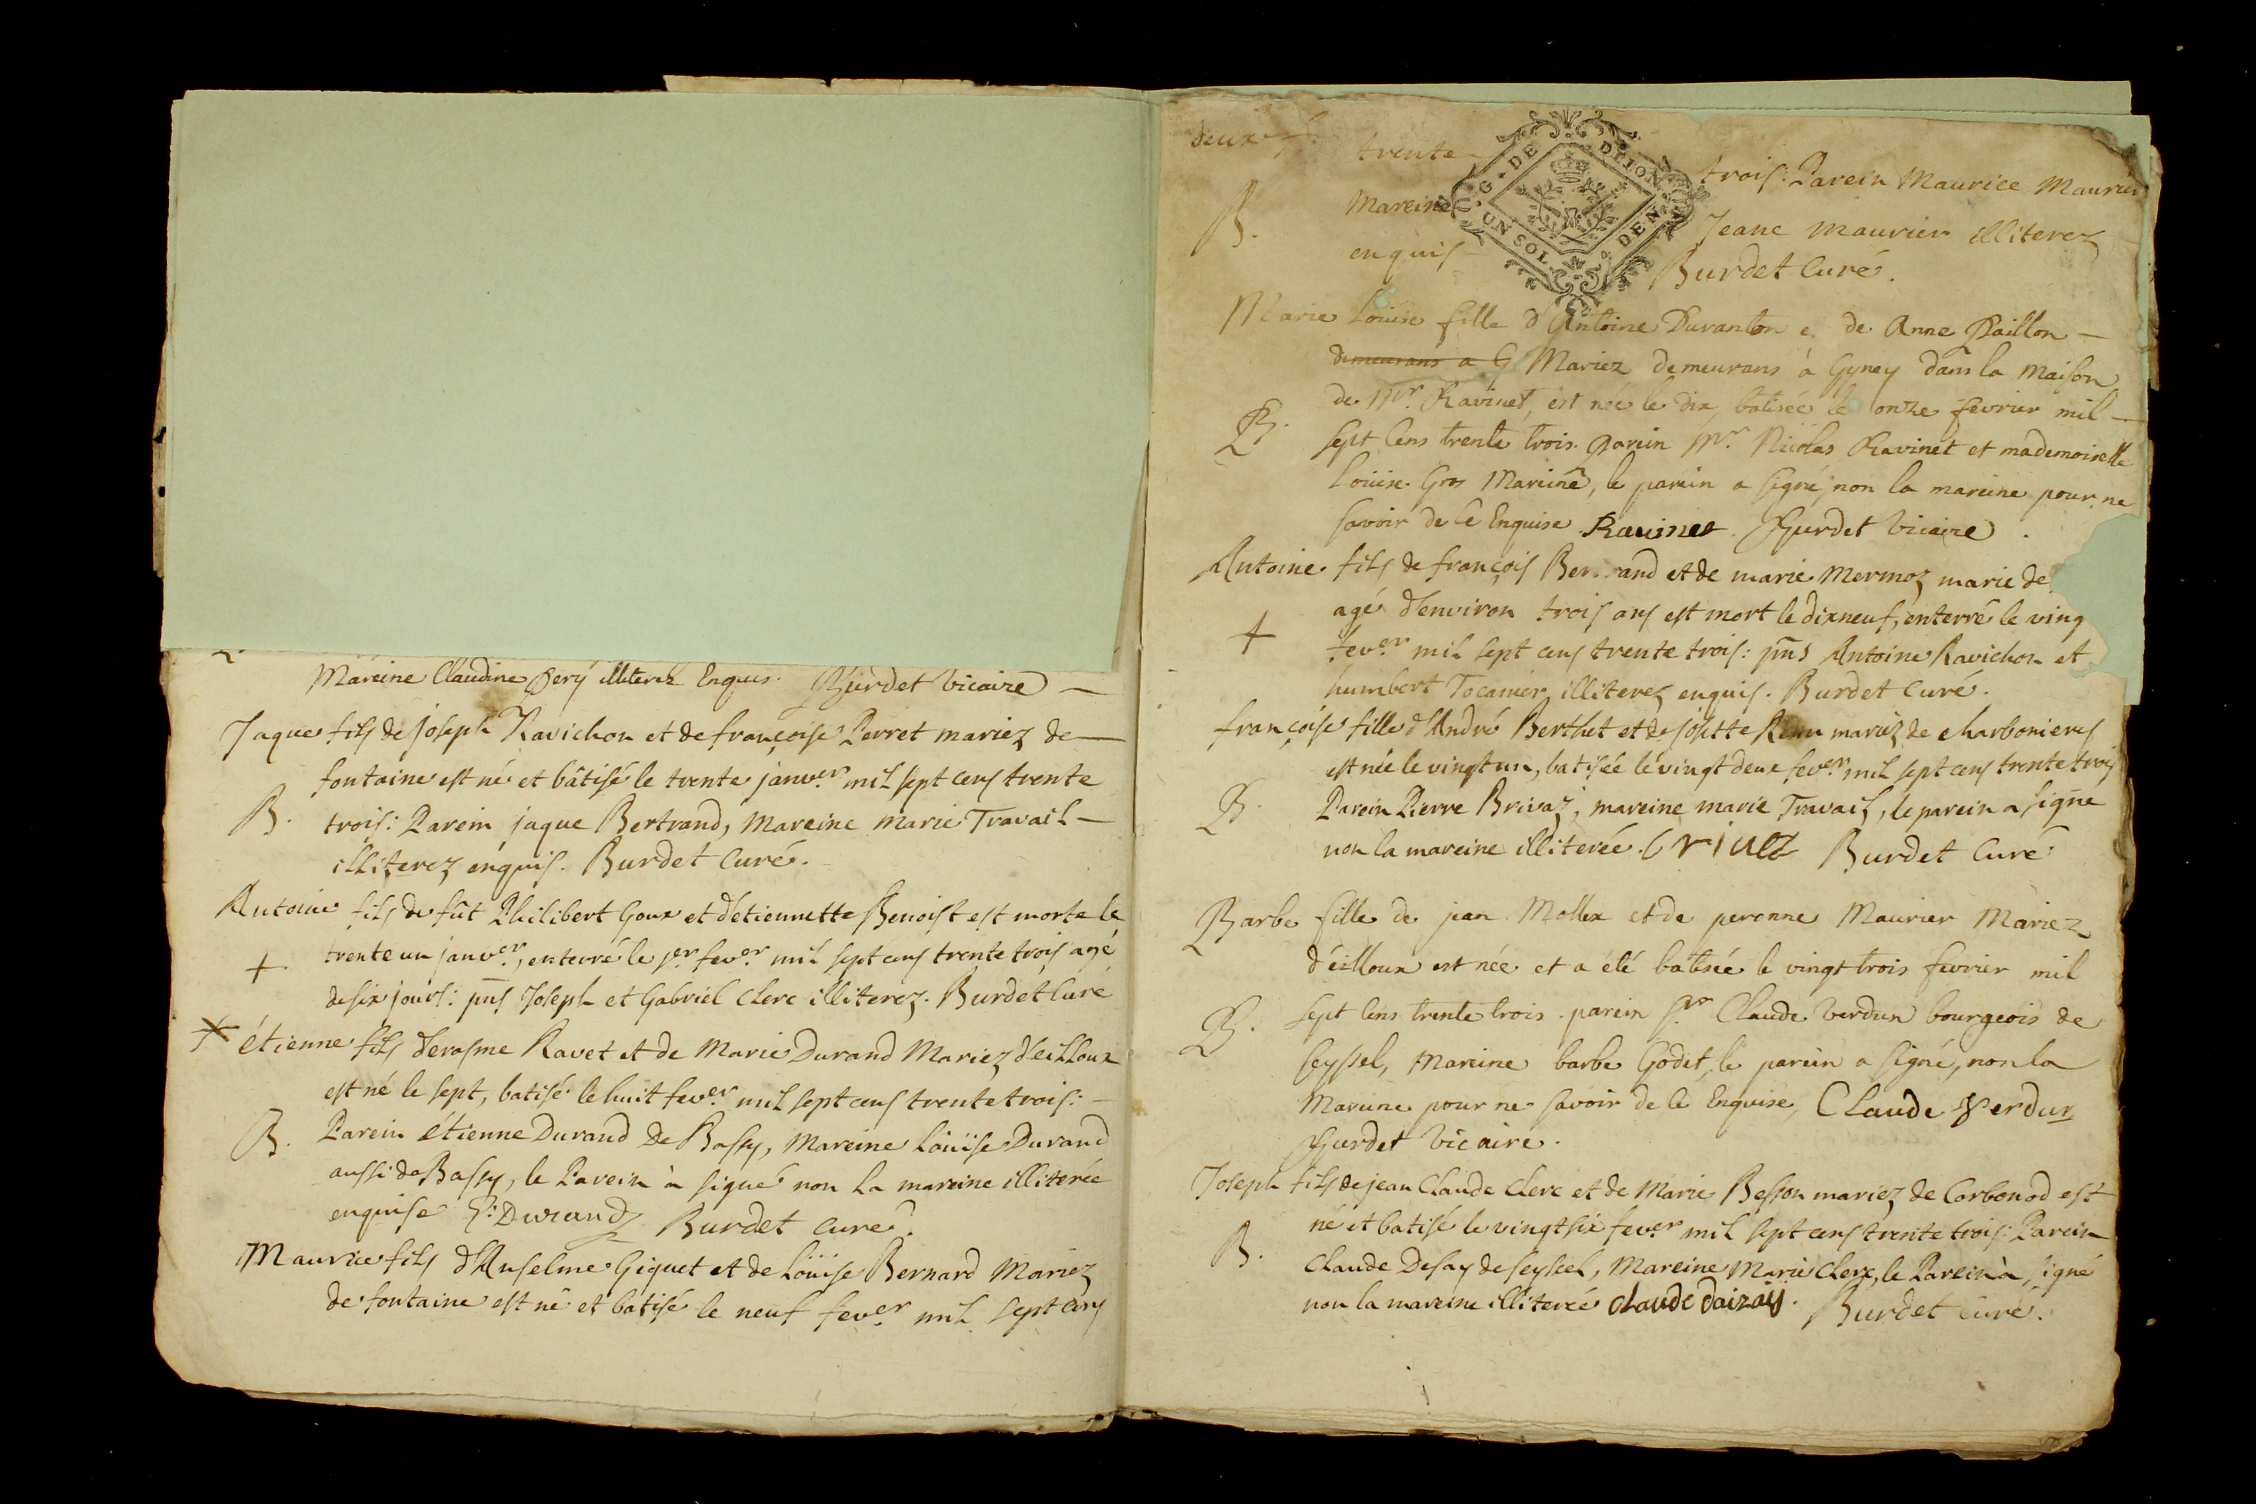 Mareine Claudine Pery illiterez Enquis. Burdet Vicaire
Jaque fils de joseph Ravichon et de françoise Perret mariez de
fontaine est né et bâtisé le trente janver mil sept cens trente
B. trois: Parein jaque Bertrand, Mareine marie Travail
illiterez enquis. Burdet Curé.
Antoine fils de fût Philibert Goux et d'etiennette Benoist est morte le
+ trente un janver, enterré le per fever mil sept cens trente trois agé
de six jours: pns Joseph et Gabriel Clerc illiterez. Burdet Curé
étienne fils d'erasme Ravet et de Marie Durand Mariez d'eilloux
est né le sept, batisé le huit fever mil sept cens trente trois:
B. Parein étienne Durand De Bassy, Mareine Loüise Durand
aussi de Bassy, le Parein à signé non la mareine illiterée
enquise E: Durand Burdet Curé.
Maurice fils d'Anselme Giguet et de Loüise Bernard Mariez
de fontaine est né et batisé le neuf fever mil sept cens
deux
trente trois: Parein Maurice Maurier
B. Mareine Jeane Maurier illiterez
enquis Burdet Curé.
G. DE DIJON
UN SOL DEN
Marie Loüise fille d'Antoine Duranton e. de Anne Paillon
demeurans a G Mariez demeurans à Gyney dans la maison
de Mr. Ravinet, est née le dix, batisée le onze fevrier mil
B. sept Cens trente trois. parein Mr. Nicolas Ravinet et mademoiselle
Loüise Gros Mareine, le parein a signé, non la mareine pour ne
savoir de Ce Enquise Ravinet. Burdet Vicaire.
Antoine fils de françois Ber and et de marie Mermoz marie de
agé d'environ trois ans est mort le dixneuf, enterré le ving
+ fever mil sept cens trente trois: pns Antoine Ravichon et
humbert Tocanier illiterez enquis. Burdet Curé.
françoise fille d'André Berthet et de josette mariez de charbonieres
est née le vingt un, batisée le vingt deux fever mil sept cens trente trois
B. Parein Pierre Brivaz, mareine marie Travail, le parein a signé
non la mareine illiterée. Burdet Curé
Barbe fille de jean Mollex et de peronne Maurier Mariez
d'eilloux est née et a été batisée le vingt trois fevrier mil
B. sept Cens trente trois. parein Sr Claude Verdun bourgeois de
seyssel, mareine barbe Godet, le parein a signé, non la
Mareine pour ne savoir de Ce Enquise, Claude Verdun
Burdet Vicaire.
Joseph fils de jean Claude Clerc et de Marie Besson mariez de Corbonod est
né et batisé le vingt six fever mil sept cens trente trois: Parein
B. Claude Desay de seyssel, Mareine Marie Clerc, le Parein à signé
non la mareine illiterée Claude daizay. Burdet Curé.